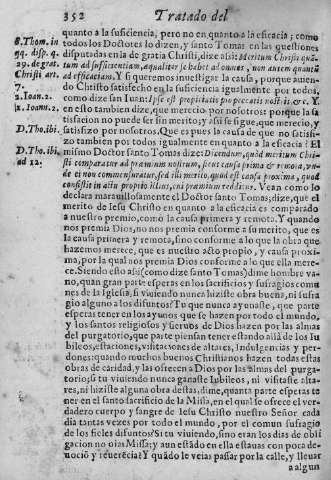 352 Tratado del
S. Thom. in
qq. disp. q.
29. de grat.
Christi art.
7.
2. Ioan. 2.
1. Ioann. 2.
D. Tho. ibi.
D. Tho. ibi.
ad 12.
quanto a la suficiencia, pero no en quanto a la eficacia; como
todos los Doctores lo dizen, y santo Tomas en las questiones
disputadas en la de gratia Christi, dize assi: Meritum Christi quã-
tum ad sufficientiam, æqualiter se habet ad omnes, non autem quantũ
ad efficatiam. Y si queremos inuestigar la causa, porque auien-
do Christo satisfecho en la suficiencia igualmente por todos,
como dize san Iuan: Ipse est propitiatio pro peccatis nostris &c. Y
en esto tambien dize, que merecio por nosotros porque la sa-
tisfacion no puede ser sin merito; y assi se sigue, que merecio, y
satisfizo por nosotros. Que es pues la causa de que no satisfi-
zo tambien por todos igualmente en quanto a la eficacia? El
mismo Doctor santo Tomas dize: Dicendum, quòd meritum Chri-
sti comparatur ad præmium nostrum, sicut causa prima & remota, vn-
de ei non commensuratur, sed illi merito, quod est causa proxima, quod
consistit in actu proprio illius, cui præmium redditur. Vean como lo
declara marauillosamente el Doctor santo Tomas; dize, que el
merito de Iesu Christo en quanto a la eficacia es comparado
a nuestro premio, como la causa primera y remota. Y quando
nos premia Dios, no nos premia conforme a su merito, que es
la causa primera y remota, sino conforme a lo que la obra que
hazemos merece, que es nuestro acto propio, y causa proxi-
ma, por la qual nos premia Dios conforme a lo que ella mere-
ce. Siendo esto assi (como dize santo Tomas) dime hombre va-
no, quan gran parte esperas en los sacrificios y sufragios comu-
nes de la Iglesia, si viuiendo nunca hiziste obra buena, ni sufra
gio alguno a los difuntos? Tu que nunca ayunaste, que parte
esperas tener en los ayunos que se hazen por todo el mundo,
y los santos religiosos y sieruos de Dios hazen por las almas
del purgatorio, que parte piensan tener estando allà de los Iu
bileos, estaciones, visitaciones de altares, Indulgencias y per-
dones: quando muchos buenos Christianos hazen todas estas
obras de caridad, y las ofrecen a Dios por las almas del purga-
torio; si tu viuiendo nunca ganaste Iubileos, ni visitaste alta-
res, ni hiziste alguna obra destas, dime, quanta parte esperas te
ner en el santo sacrificio de la Missa, en el qual se ofrece el ver-
dadero cuerpo y sangre de Iesu Christo nuestro Señor cada
dia tantas vezes por todo el mundo, por el comun sufragio
de los fieles difuntos? Si tu viuiendo, sino eran los dias de obli
gacion no oias Missa; y aun estado en ella estauas con poca de-
uocio y reuerẽcia? Y quãdo le veias passar por la calle, y lleuar
a algun